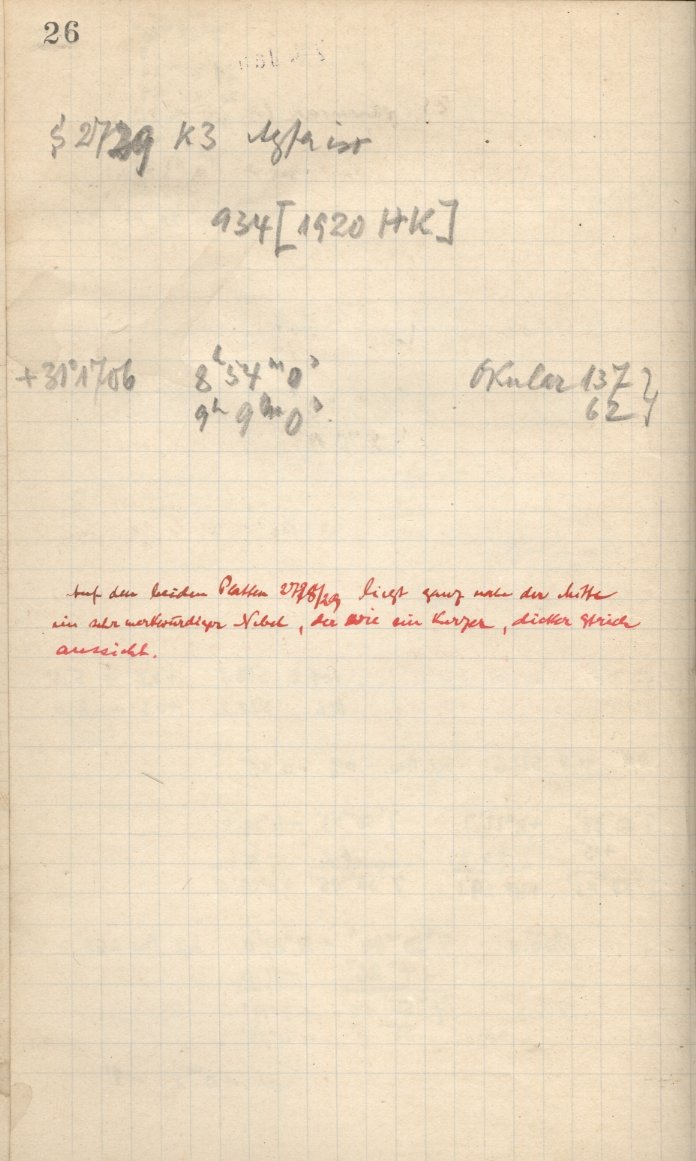 26
§ 2729 K3 Agfa iso
934 [1920 HK]
+31°1706 8ʰ 54ᵐ 0ˢ Okular 137
9ʰ 9ᵐ 0ˢ 62
Auf den beiden Platten 2728/29 liegt ganz nahe der Mitte
ein sehr merkwürdiger Nebel, der wie ein kurzer, dicker Strich
aussieht.